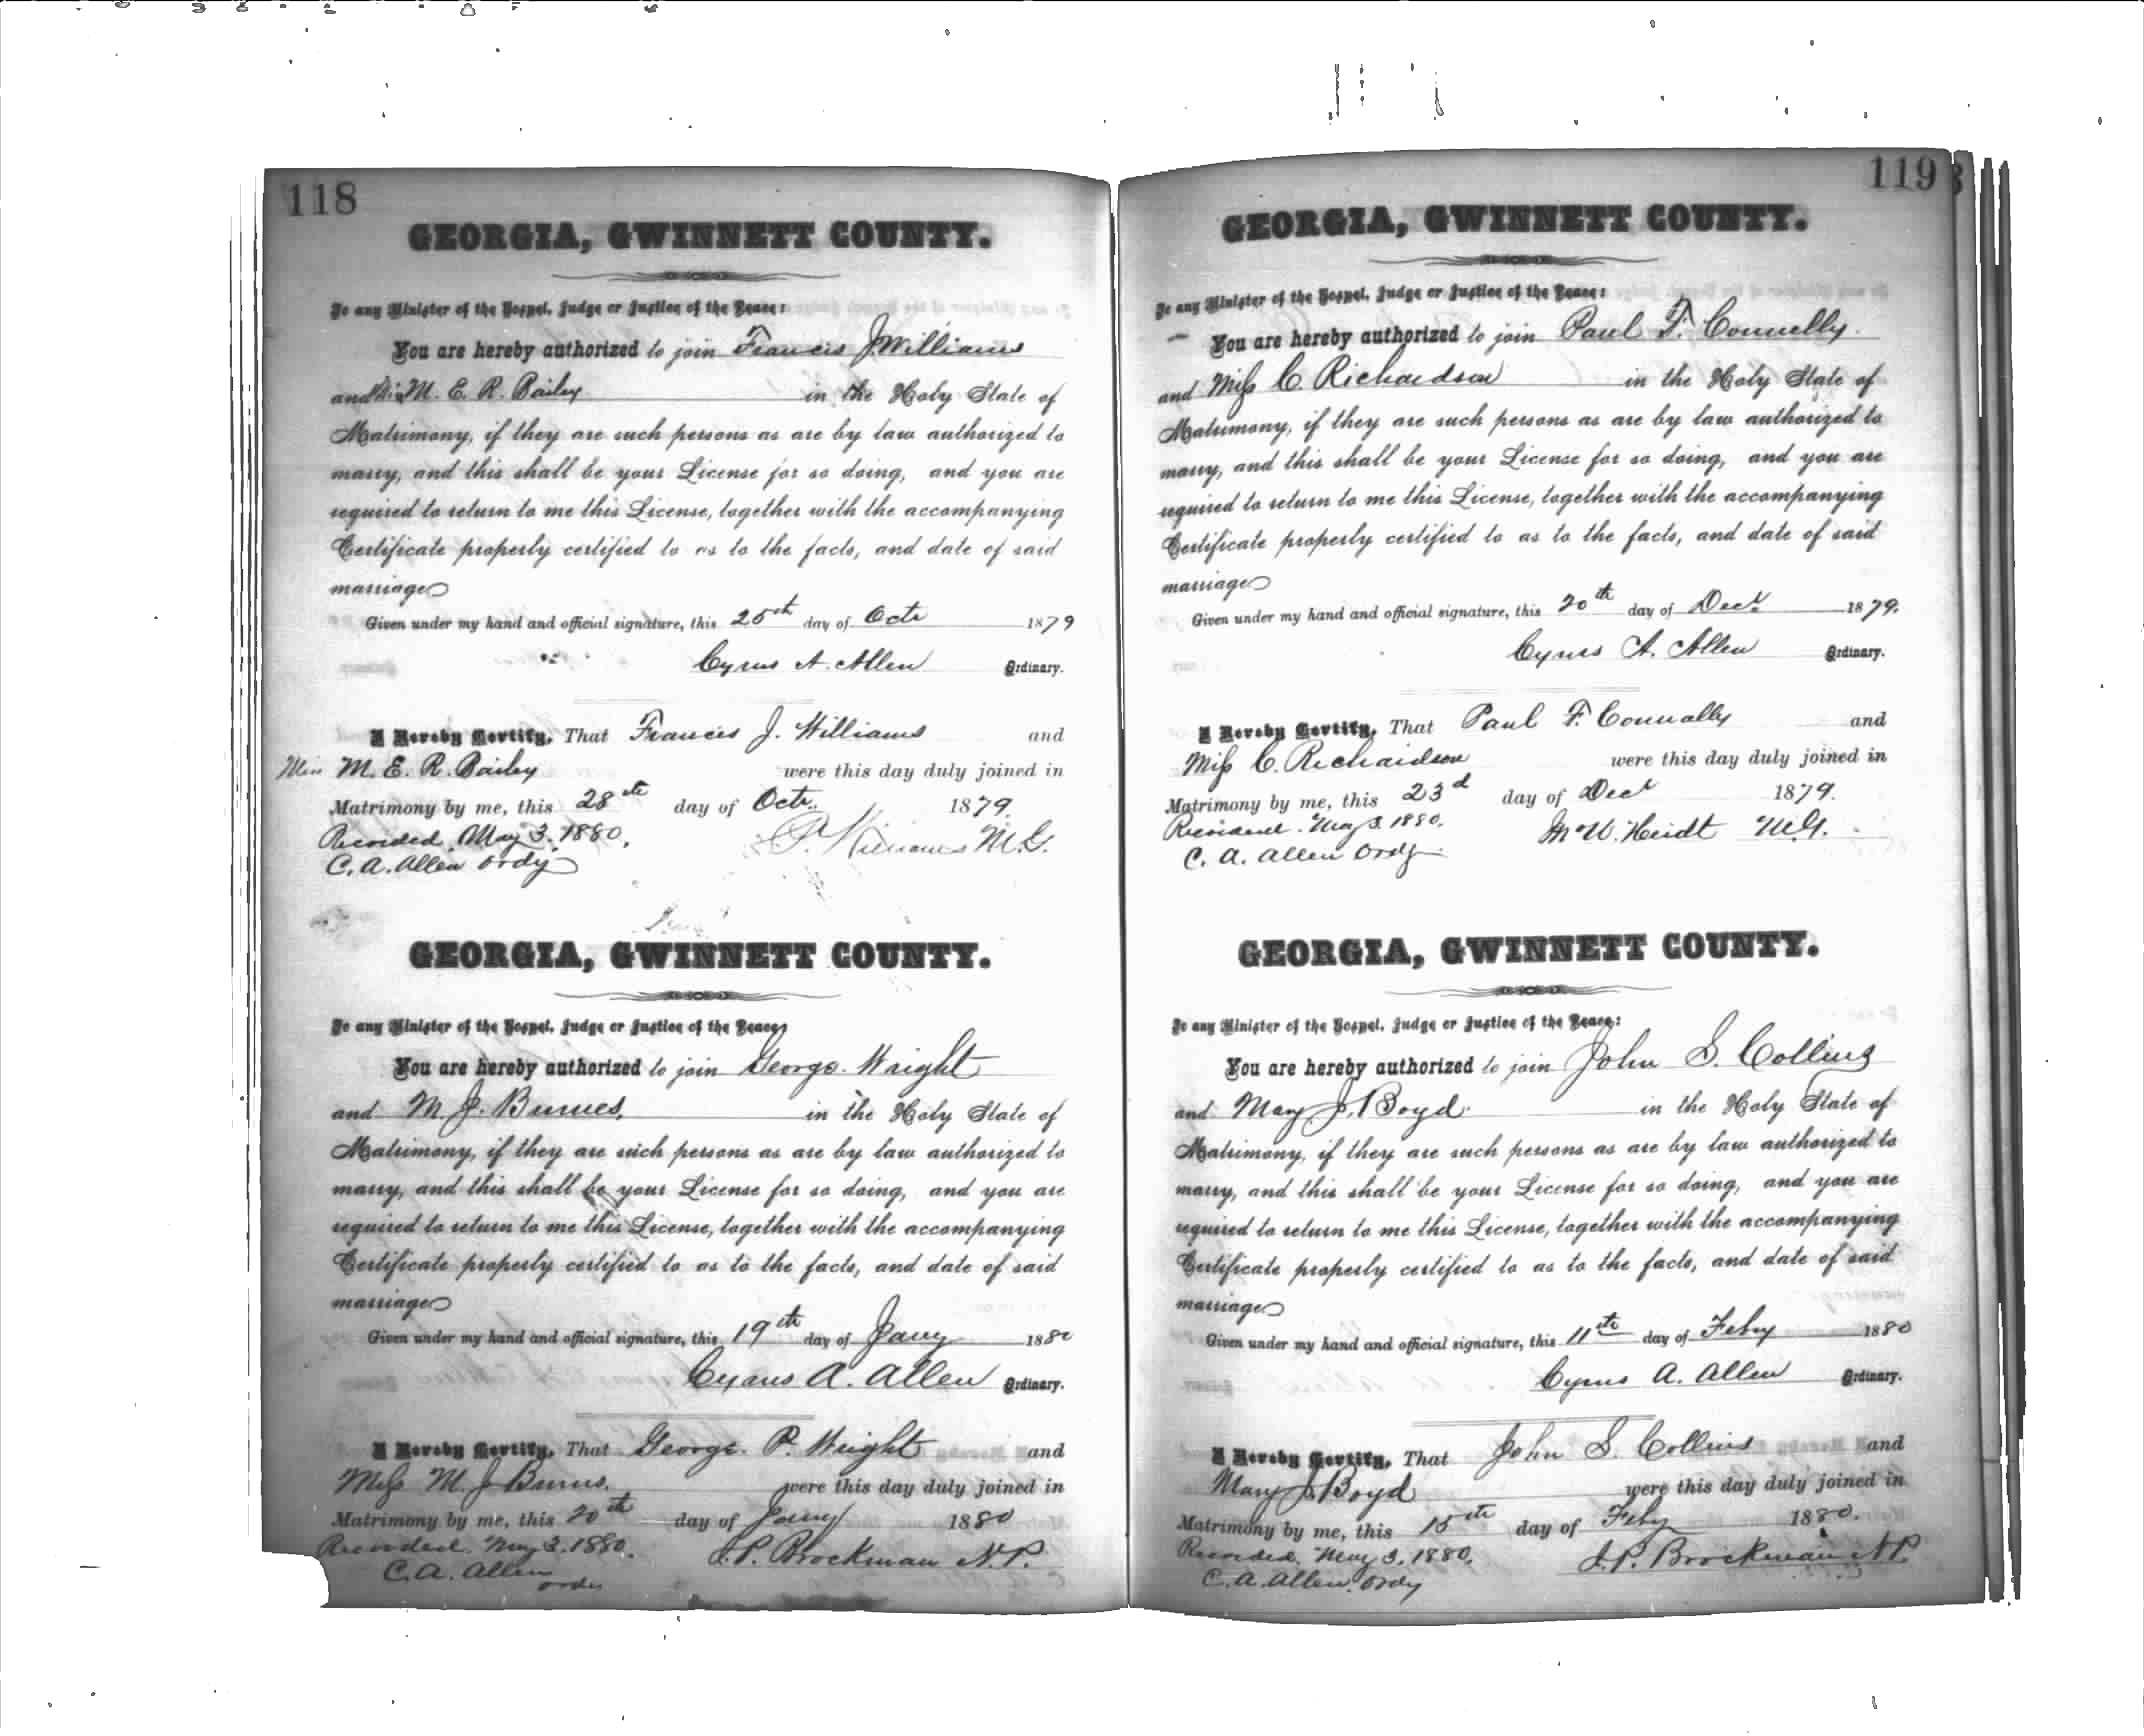 118
GEORGIA, GWINNETT COUNTY.
To any Minister of the Gospel, Judge or Justice of the Peace:
You are hereby authorized to join Francis J Williams
and Miss M. E. R. Bailey in the Holy State of
Matrimony, if they are such persons as are by law authorized to
marry, and this shall be your License for so doing, and you are
required to return to me this License, together with the accompanying
Certificate properly certified to as to the facts, and date of said
marriage
Given under my hand and official signature, this 25th day of Octr 1879
Cyrus A. Allen Ordinary.
I Hereby Certify, That Francis J. Williams and
Miss M. E. R. Bailey were this day duly joined in
Matrimony by me, this 28th day of Octr. 1879
Recorded. May 3. 1880.
C. A. Allen Ordy
M. G.
GEORGIA, GWINNETT COUNTY.
To any Minister of the Gospel, Judge or Justice of the Peace
You are hereby authorized to join George. Wright
and M J. Burnes. in the Holy State of
Matrimony, if they are such persons as are by law authorized to
marry, and this shall be your License for so doing, and you are
required to return to me this License, together with the accompanying
Certificate properly certified to as to the facts, and date of said
marriage
Given under my hand and official signature, this 19th day of Jany 1880
Cyrus A. Allen Ordinary.
I Hereby Certify, That George. P. Wright and
Miss M. J Burns. were this day duly joined in
Matrimony by me, this 20th day of Jany 1880
Recorded. May 3. 1880.
C. A. Allen
Ordy
J. P. Brockman N. P.
119
GEORGIA, GWINNETT COUNTY.
To any Minister of the Gospel, Judge or Justice of the Peace:
You are hereby authorized to join Paul F. Connelly.
and Miss C Richardson in the Holy State of
Matrimony, if they are such persons as are by law authorized to
marry, and this shall be your License for so doing, and you are
required to return to me this License, together with the accompanying
Certificate properly certified to as to the facts, and date of said
marriage
Given under my hand and official signature, this 20th day of Decr 1879.
Cyrus A. Allen Ordinary.
I Hereby Certify, That Paul F. Connally and
Miss C. Richardson were this day duly joined in
Matrimony by me, this 23d day of Decr 1879.
Recorded. May 3. 1880.
C. A. Allen Ordy
Heidt M. G.
GEORGIA, GWINNETT COUNTY.
To any Minister of the Gospel, Judge or Justice of the Peace:
You are hereby authorized to join John S. Collins
and Mary J. Boyd. in the Holy State of
Matrimony, if they are such persons as are by law authorized to
marry, and this shall be your License for so doing, and you are
required to return to me this License, together with the accompanying
Certificate properly certified to as to the facts, and date of said
marriage
Given under my hand and official signature, this 11th day of Feby 1880
Cyrus A. Allen Ordinary.
I Hereby Certify, That John S. Collins and
Mary J. Boyd were this day duly joined in
Matrimony by me, this 15th day of Feby 1880.
Recorded. May 3. 1880.
C. A. Allen. Ordy
J. P. Brockman N P.